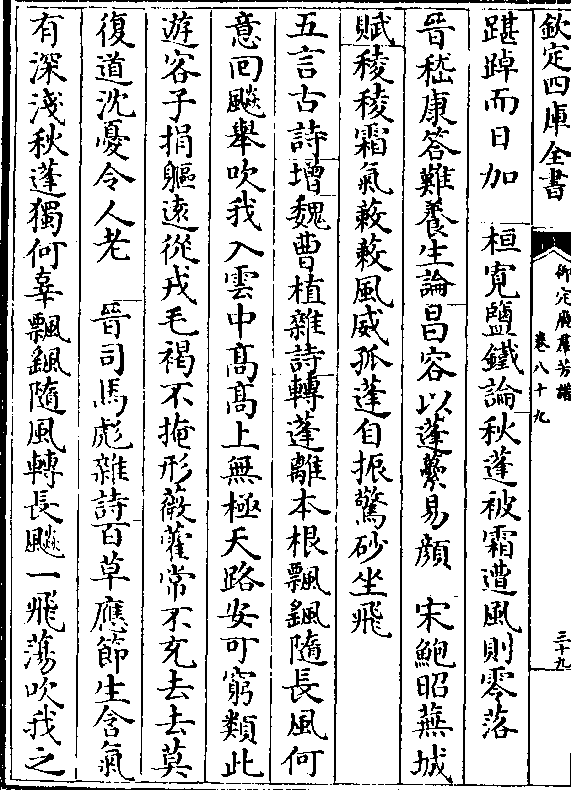 欽定四庫全書
御定廣羣芳譜
卷八十九
三十九
踸踔而日加　桓寛鹽鐵論秋蓬被霜遭風則零落
晉嵇康答難養生論昌容以蓬蘽易顔　宋鮑昭蕪城
賦稜稜霜氣蔌蔌風威孤蓬自振驚砂坐飛
五言古詩增魏曹植雜詩轉蓬離本根飄颻隨長風何
意回飈舉吹我入雲中髙髙上無極天路安可窮類此
遊客子捐軀逺從戎毛褐不掩形薇藿常不充去去莫
復道沈憂令人老　晉司馬彪雜詩百草應節生含氣
有深淺秋蓬獨何辜飄颻隨風轉長飈一飛薄吹我之